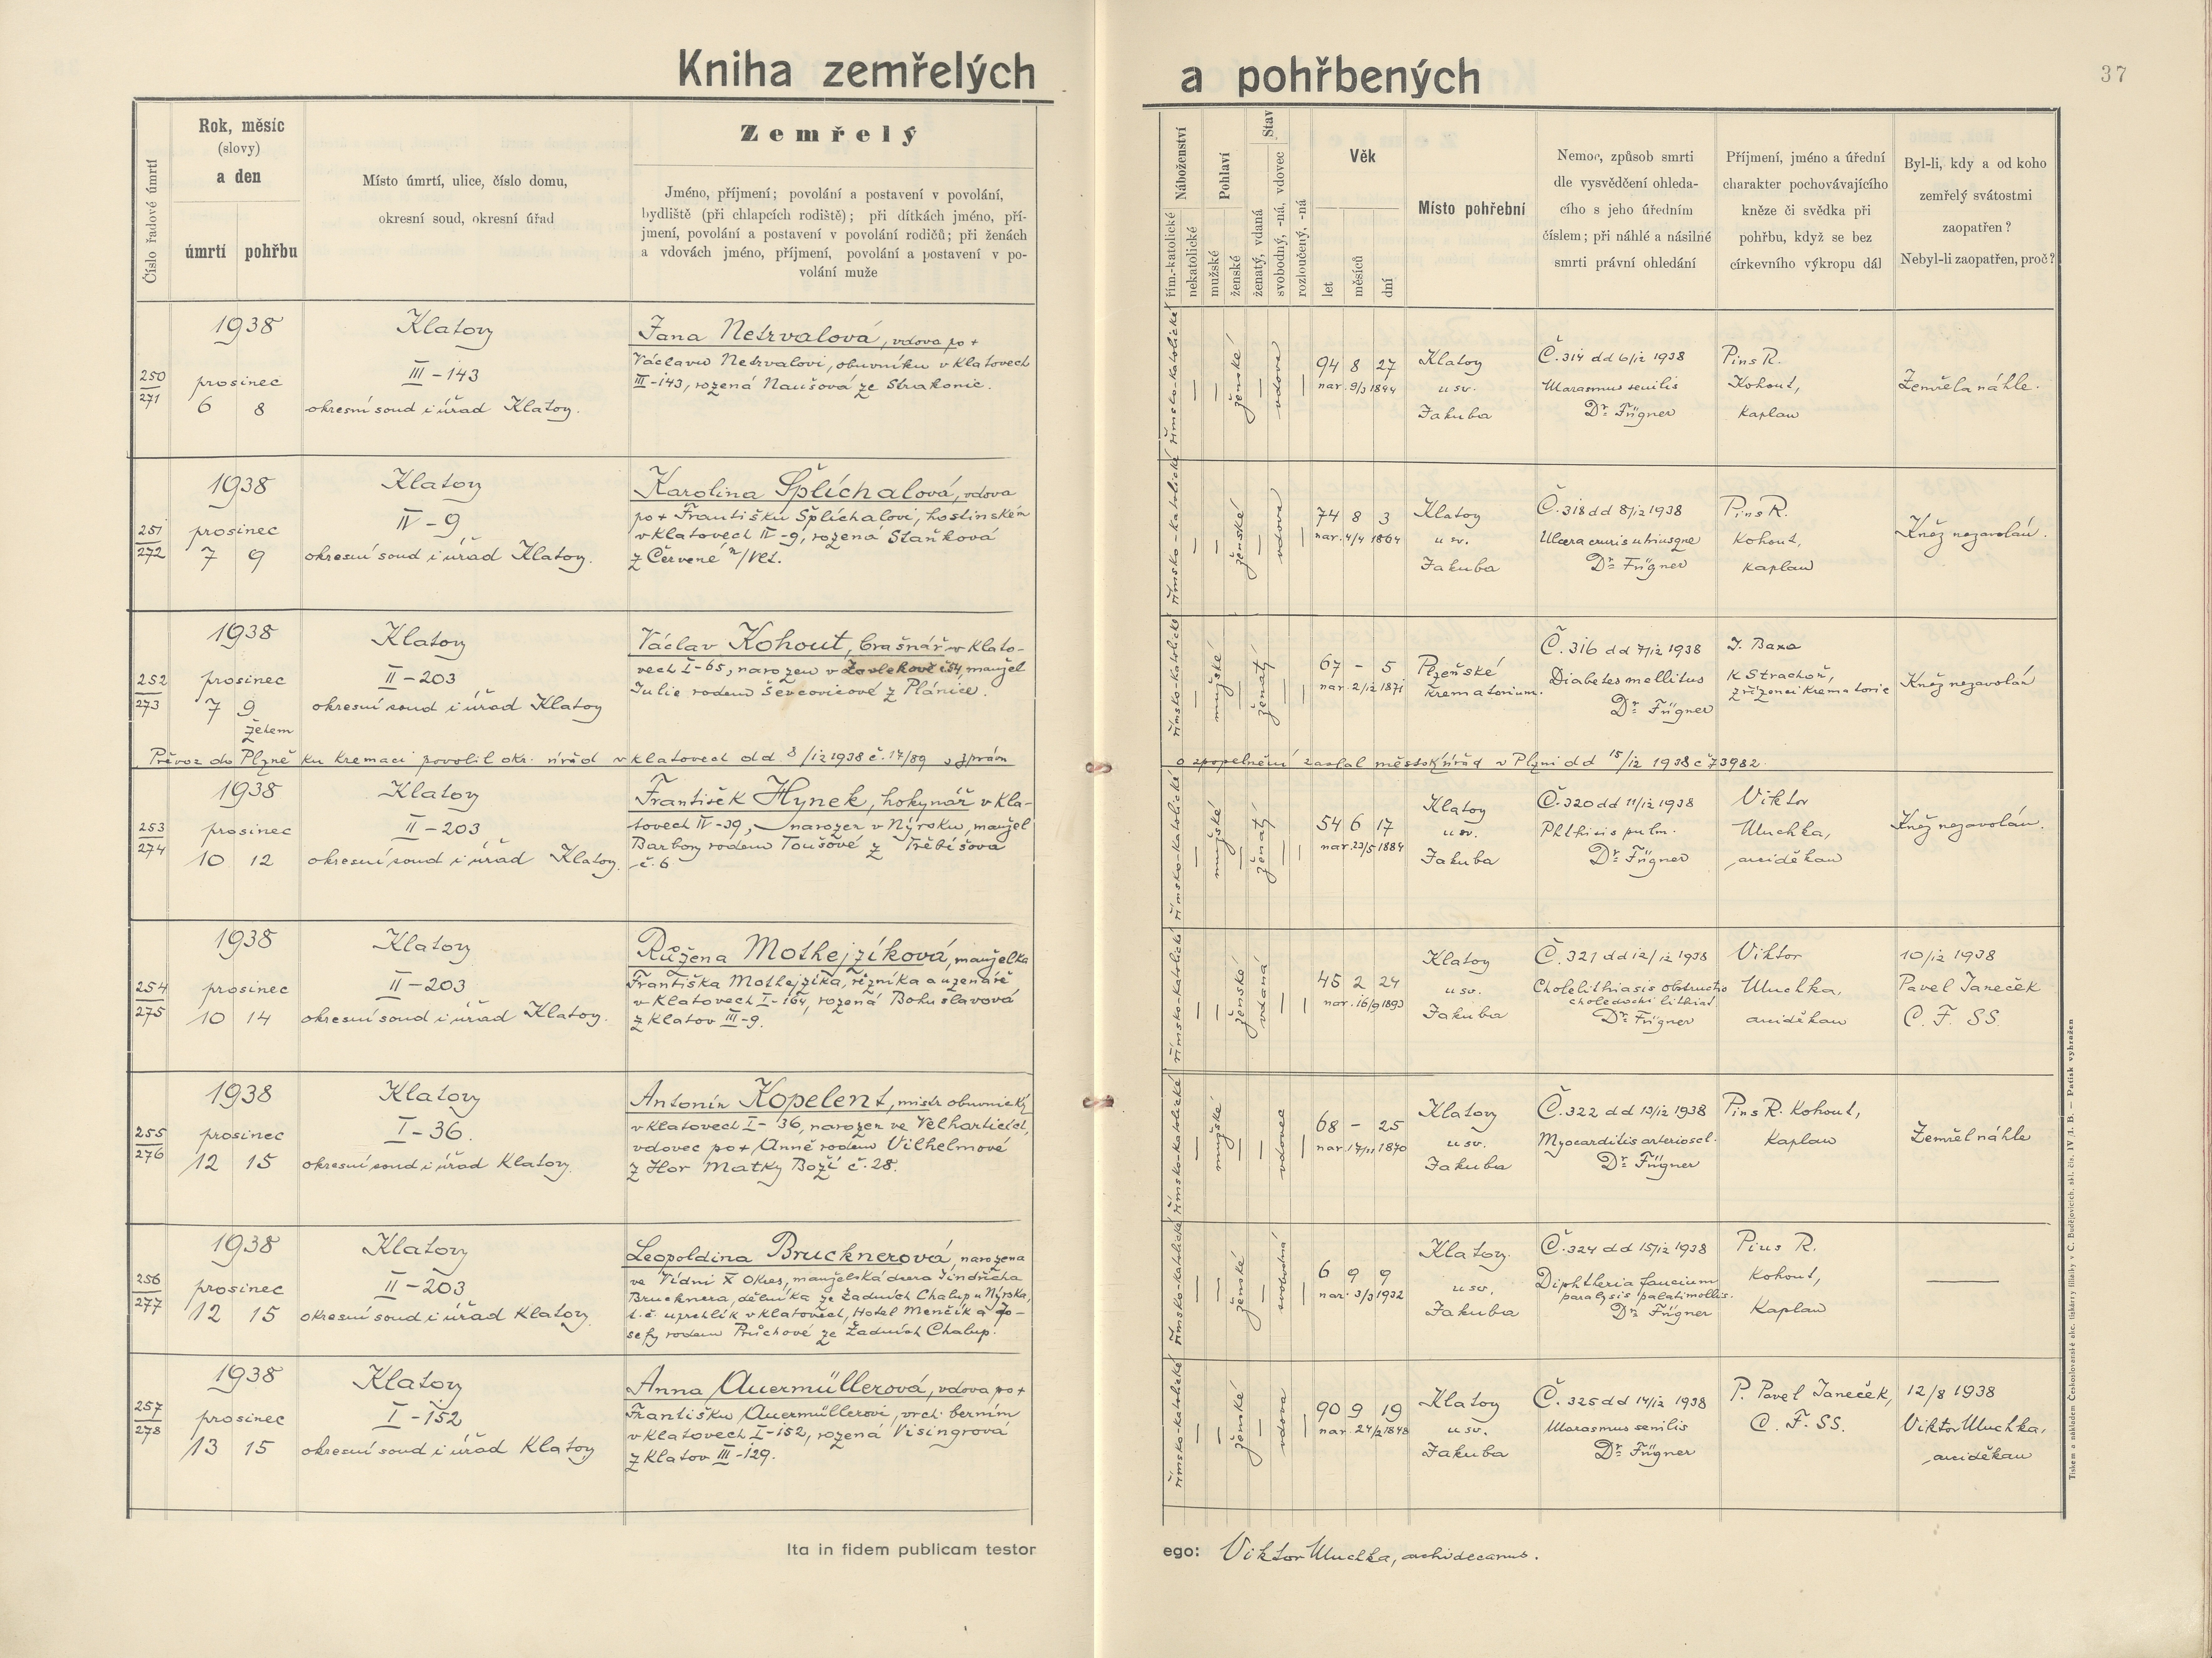 Kniha zemřelých a pohřbených
37
Číslo řadové úmrtí
Rok, měsíc
(slovy)
a den
úmrtí
pohřbu
Místo úmrtí, ulice, číslo domu,
okresní soud, okresní úřad
Zemřelý
Jméno, příjmení; povolání a postavení v povolání,
bydliště (při chlapcích rodiště); při dítkách jméno, pří-
jmení, povolání a postavení v povolání rodičů; při ženách
a vdovách jméno, příjmení, povolání a postavení v po-
volání muže
Náboženství
řím.-katolické
nekatolické
Pohlaví
mužské
ženské
Stav
ženatý, vdaná
svobodný, -ná, vdovec
rozloučený, -ná
Věk
let
měsíců
dní
Místo pohřební
Nemoc, způsob smrti
dle vysvědčení ohleda-
cího s jeho úředním
číslem; při náhlé a násilné
smrti právní ohledání
Příjmení, jméno a úřední
charakter pochovávajícího
kněze či svědka při
pohřbu, když se bez
církevního výkropu dál
Byl-li, kdy a od koho
zemřelý svátostmi
zaopatřen?
Nebyl-li zaopatřen, proč?
250
271
1938
prosinec
6 8
Klatovy
III-143
okresní soud i úřad Klatovy.
Jana Netrvalová, vdova po +
Václavu Netrvalovi, obuvníku v Klatovech
III-143, rozená Naušová ze Strakonic.
římsko-katolické
—
—
ženské
—
vdova
—
94 8 27
nar. 9/3 1844
Klatovy
u sv.
Jakuba
Č. 314 dd 6/12 1938
Marasmus senilis
Dr. Fügner
Pius R.
Kohout,
kaplan
Zemřela náhle.
251
272
1938
prosinec
7 9
Klatovy
IV-9
okresní soud i úřad Klatovy.
Karolina Šplíchalová, vdova
po + Františku Šplíchalovi, hostinském
v Klatovech IV-9, rozená Staňková
z Červené n/Vlt.
římsko-katolické
—
—
ženské
—
vdova
—
74 8 3
nar. 4/4 1864
Klatovy
u sv.
Jakuba
Č. 318 dd 8/12 1938
Ulcera cruris utriusque
Dr. Fügner
Pius R.
Kohout,
kaplan
Kněz nezavolán.
252
273
1938
prosinec
7 9
žehem
Klatovy
II-203
okresní soud i úřad Klatovy
Václav Kohout, brašnář v Klato-
vech I-65, narozen v Zavlekově č 54, manžel
Julie rodem Ševcovicové z Plánice.
římsko-katolické
—
mužské
—
ženatý
—
—
67 - 5
nar. 2/12 1871
Plzeňské
krematorium.
Č. 316 dd 7/12 1938
Diabetes mellitus
Dr. Fügner
J. Baxa
K Strachoň,
zřízenci krematorie
Kněz nezavolán
Převoz do Plzně ku kremaci povolil okr. úřad v Klatovech dd 8/12 1938 č. 17/89 o zprávu o zpopelnění zaslal městský úřad v Plzni dd 15/12 1938 č 73982.
253
274
1938
prosinec
10 12
Klatovy
II-203
okresní soud i úřad Klatovy.
František Hynek, hokynář v Kla-
tovech IV-39, narozen v Nýrsku, manžel
Barbory rodem Toušové z Třebíšova
č. 6
římsko-katolické
—
mužské
—
ženatý
—
—
54 6 17
nar. 23/5 1884
Klatovy
u sv.
Jakuba
Č. 320 dd 11/12 1938
Phthisis pulm.
Dr. Fügner
Viktor
Muchka,
arciděkan
Kněz nezavolán.
254
275
1938
prosinec
10 14
Klatovy
II-203
okresní soud i úřad Klatovy.
Růžena Mothejzíková, manželka
Františka Mothejzíka, řezníka a uzenáře
v Klatovech I-164, rozená Bohuslavová
z Klatov III-9.
římsko-katolické
—
—
ženské
vdaná
—
—
45 2 24
nar. 16/9 1893
Klatovy
u sv.
Jakuba
Č. 321 dd 12/12 1938
Cholelithiasis obstructio
choledochi lithiat
Dr. Fügner
Viktor
Muchka,
arciděkan
10/12 1938
Pavel Janeček
C. F. SS.
255
276
1938
prosinec
12 15
Klatovy
I-36.
okresní soud i úřad Klatovy.
Antonín Kopelent, mistr obuvnický
v Klatovech I-36, narozen ve Velharticích,
vdovec po + Anně rodem Vilhelmové
z Hor Matky Boží č. 28.
římsko-katolické
—
mužské
—
—
vdovec
—
68 - 25
nar. 17/11 1870
Klatovy
u sv.
Jakuba
Č. 322 dd 13/12 1938
Myocarditis arterioscl.
Dr. Fügner
Pius R. Kohout,
kaplan
Zemřel náhle
256
277
1938
prosinec
12 15
Klatovy
II-203
okresní soud i úřad Klatovy.
Leopoldina Brucknerová, narozena
ve Vídni X okres, manželská dcera Jindřicha
Brucknera, dělníka ze Zadních Chalup u Nýrska,
t. č. uprchlík v Klatovech, Hotel Menčík a Jo-
sefy rodem Průchové ze Zadních Chalup.
římsko-katolické
—
—
ženské
—
svobodná
—
6 9 9
nar. 3/3 1932
Klatovy
u sv.
Jakuba
Č. 324 dd 15/12 1938
Diphtheria faucium
paralysis palatimollis.
Dr. Fügner
Pius R.
Kohout,
Kaplan
—
257
278
1938
prosinec
13 15
Klatovy
I-152
okresní soud i úřad Klatovy
Anna Auermüllerová, vdova po +
Františku Auermüllerovi, vrch. berním
v Klatovech I-152, rozená Visingrová
z Klatov III-129.
římsko-katolické
—
—
ženské
—
vdova
—
90 9 19
nar. 24/2 1848
Klatovy
u sv.
Jakuba
Č. 325 dd 14/12 1938
Marasmus senilis
Dr. Fügner
P. Pavel Janeček,
C. F. SS.
12/8 1938
Viktor Muchka,
arciděkan
Ita in fidem publicam testor ego: Viktor Muchka, archidecanus.